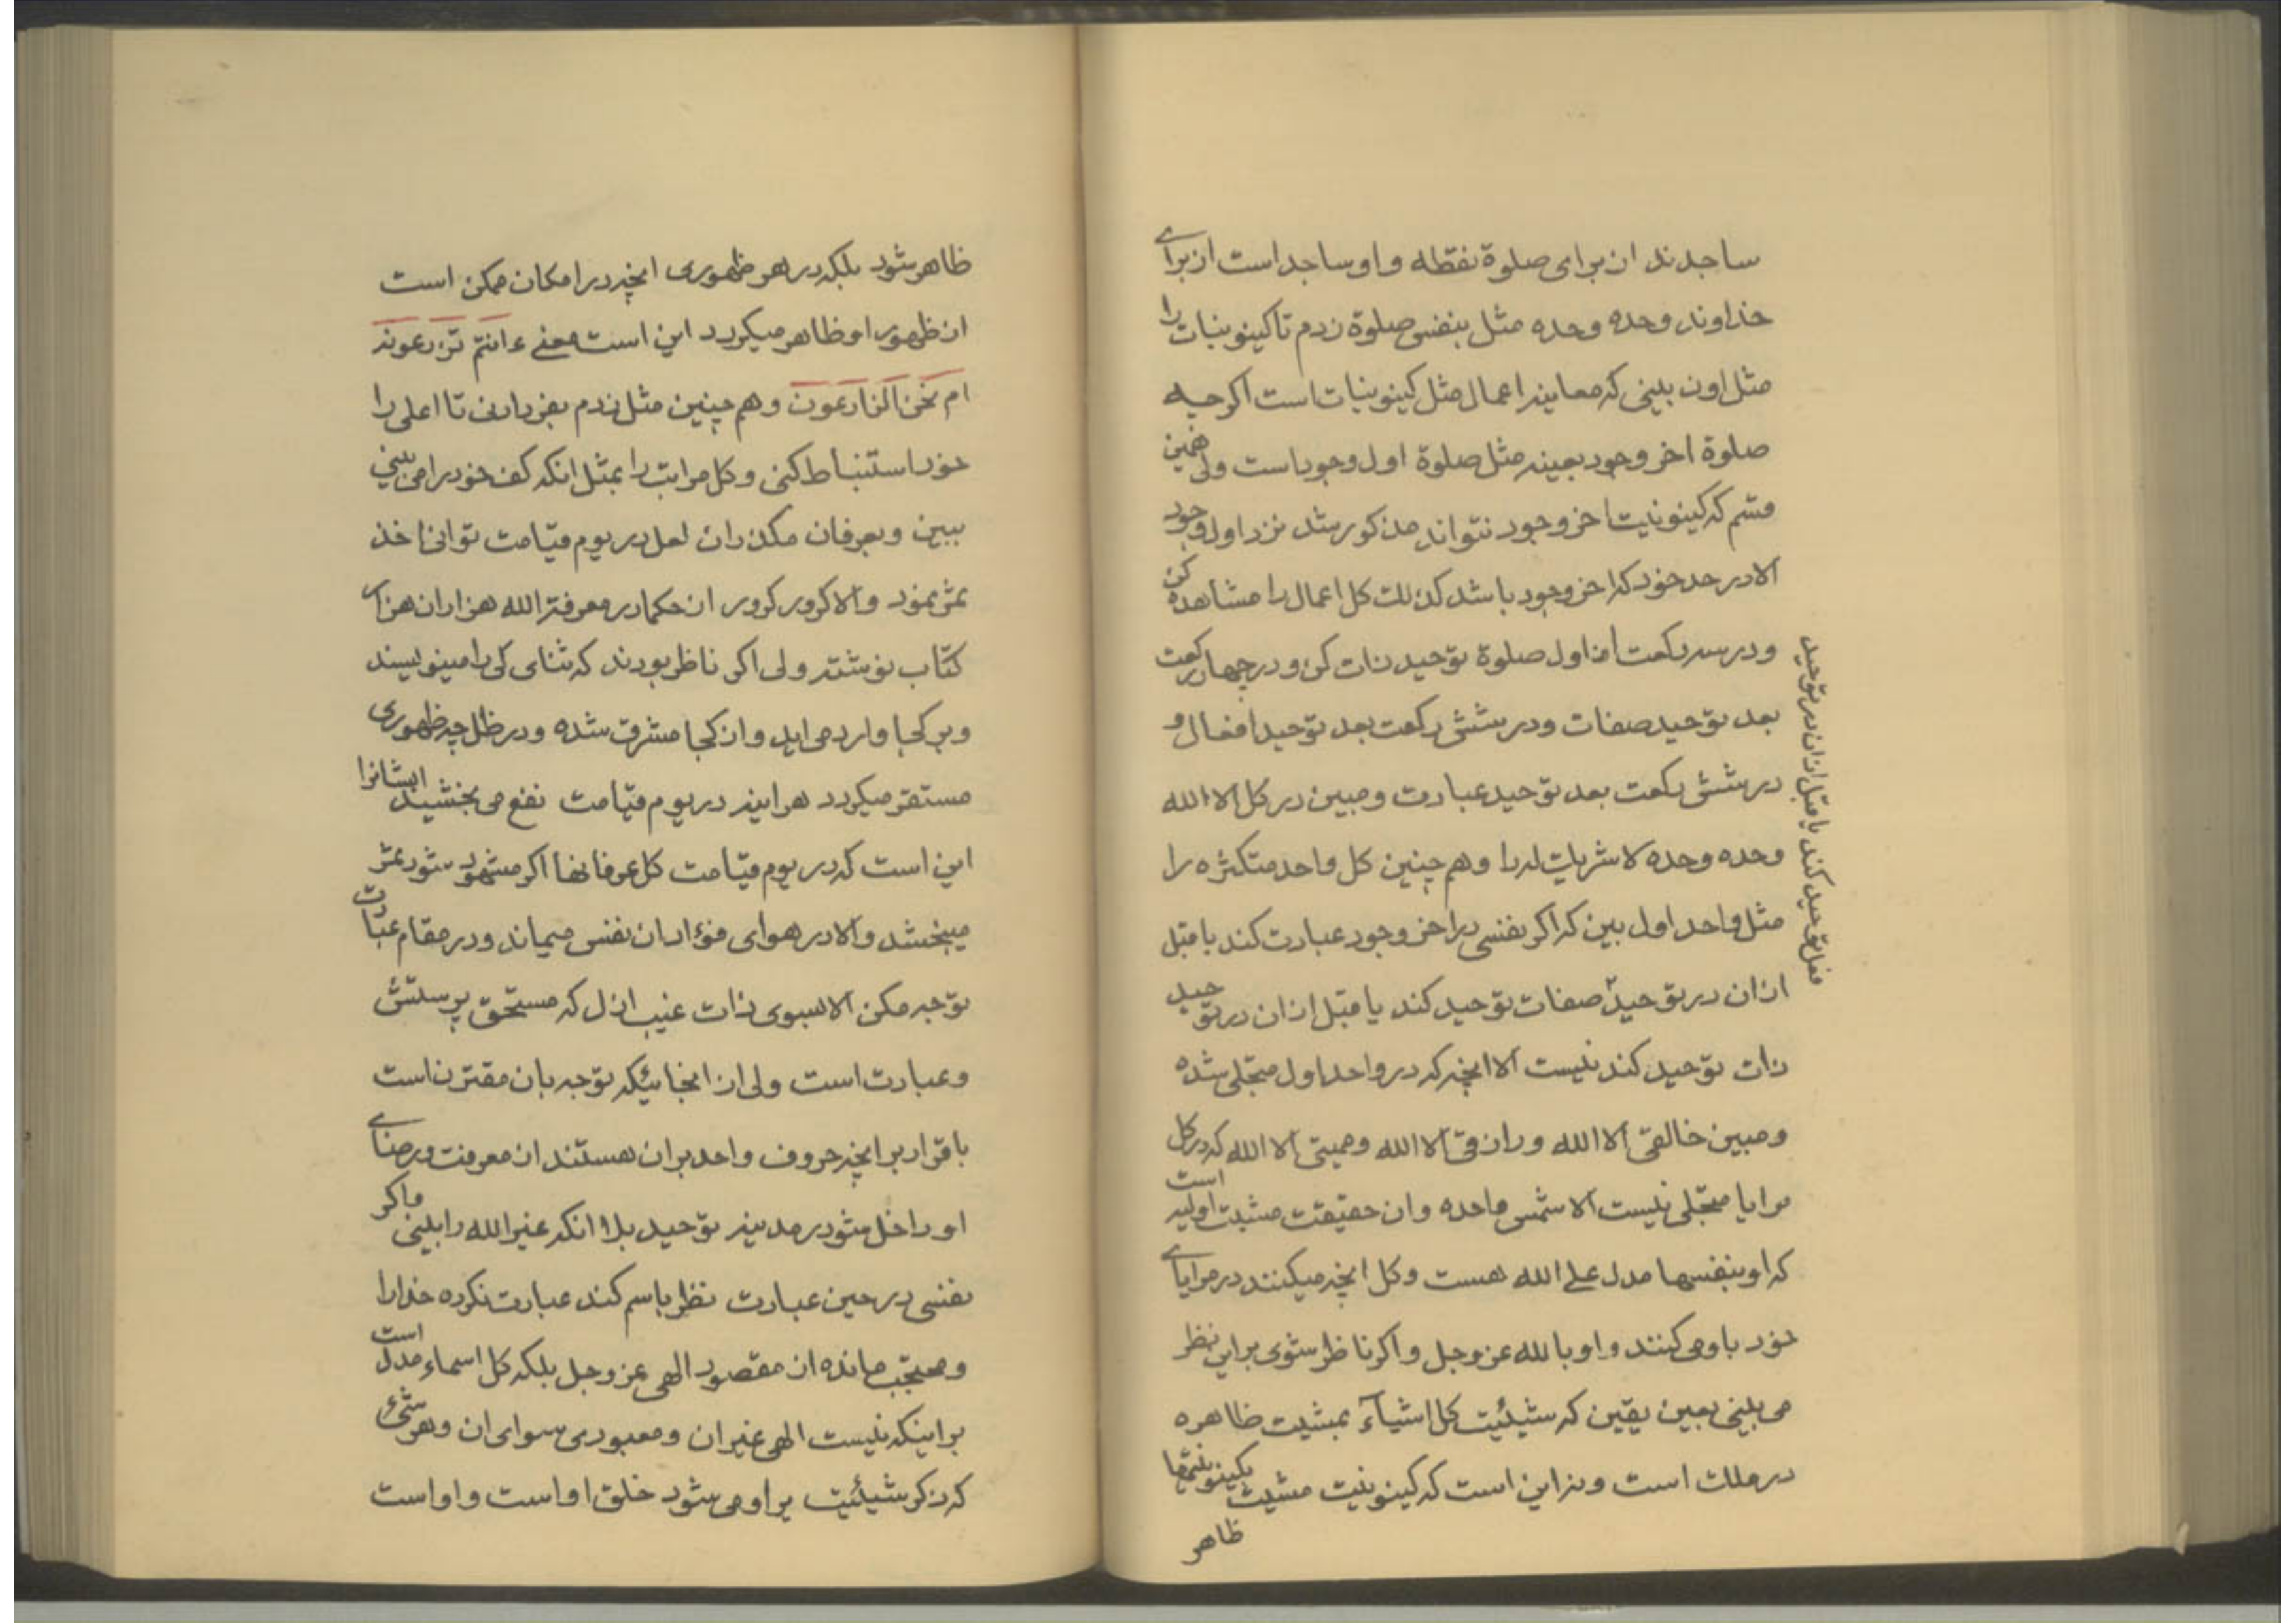 ساجدند از برای صلوة نقطه و او ساجد است از برای
خداوند وحده وحده مثل بنفس صلوة زدم تا کینونیات را
مثل او نه بینی که معاینه اعمال مثل کینونیات است اکرچه
صلوة اخر وجود بعینه مثل صلوة اول وجود است ولی همین
قسم که کینونیت اخر وجود نتواند مذکور شد نزد اول وجود
الا در حد خود که اخر وجود باشد کذلک کل اعمال را مشاهده کن
و در سه رکعت از اول صلوة توحید ذات کن و در چهار رکعت
بعد توحید صفات و در شش رکعت بعد توحید افعال و
در شش رکعت بعد توحید عبادت و مبین در کل الا الله
وحده وحده لا شریک له را و هم چنین کل واحد متکثره را
مثل واحد اول بین که اکر نفسی در اخر وجود عبادت کند یا قبل
از ان در توحید صفات توحید کند یا قبل از ان در توحید
ذات توحید کند نیست الا انچه که در واحد اول متجلی شده
و مبین خالقی الا الله و رازقی الا الله و ممیتی الا الله که در کل
مرایا متجلی نیست الا شمس واحده و ان حقیقت مشیت اولیه است
که او بنفسها مدل علی الله هست و کل انچه میکنند در مرایای
خود باو می کنند و او بالله عز وجل و اکر ناظر شوی براین نظر
می بینی بعین یقین که شیئیت کل اشیآء بمشیت ظاهره
در ملک است و نزاین است که کینونیت مشیت بکینونیتها
ظاهر
فعل توحید کند یا قبل از ان در توحید
ظاهر شود بلکه در هر ظهوری انچه در امکان ممکن است
از ظهور او ظاهر میکردد این است معنی ءانتم تزرعونه
ام نحن الزارعون و هم چنین مثل زدم بفرد ادنی تا اعلی را
خود استنباط کنی و کل مراتب را بمثل انکه کف خود را می بینی
ببین و بعرفان مکذران لعل در یوم قیامت توانی اخذ
ثمر نمود والا کرور کرور از حکما در معرفة الله هزاران هزار
کتاب نوشته ولی اکر ناظر بودند که ثنای کی را مینویسند
و بر کجا وارد می اید و از کجا مشرق شده و در ظل چه ظهوری
مستقر میکردد هراینه در یوم قیامت نفع می بخشید ایشانرا
این است که در یوم قیامت کل عرفانها اکر مشهود شود ثمر
میبخشد والا در هوای فؤاد ان نفس میماند و در مقام عبادت
توجه مکن الا بسوی ذات غیب ازل که مستحق پرستش
و عبادت است ولی از انجائیکه توجه بان مقترن است
باقرار بر انچه حروف واحد بران هستند از معرفت و رضای
او داخل شو در مدینه توحید بلا انکه غیر الله را بینی و اکر
نفسی در حین عبادت نظر باسم کند عبادت نکرده خدا را
و محتجب مانده از مقصود الهی عز وجل بلکه کل اسماء مدل است
براینکه نیست الهی غیر ان و معبودی سوای ان و هر شیء
که ذکر شیئیت براو می شود خلق او است و او است